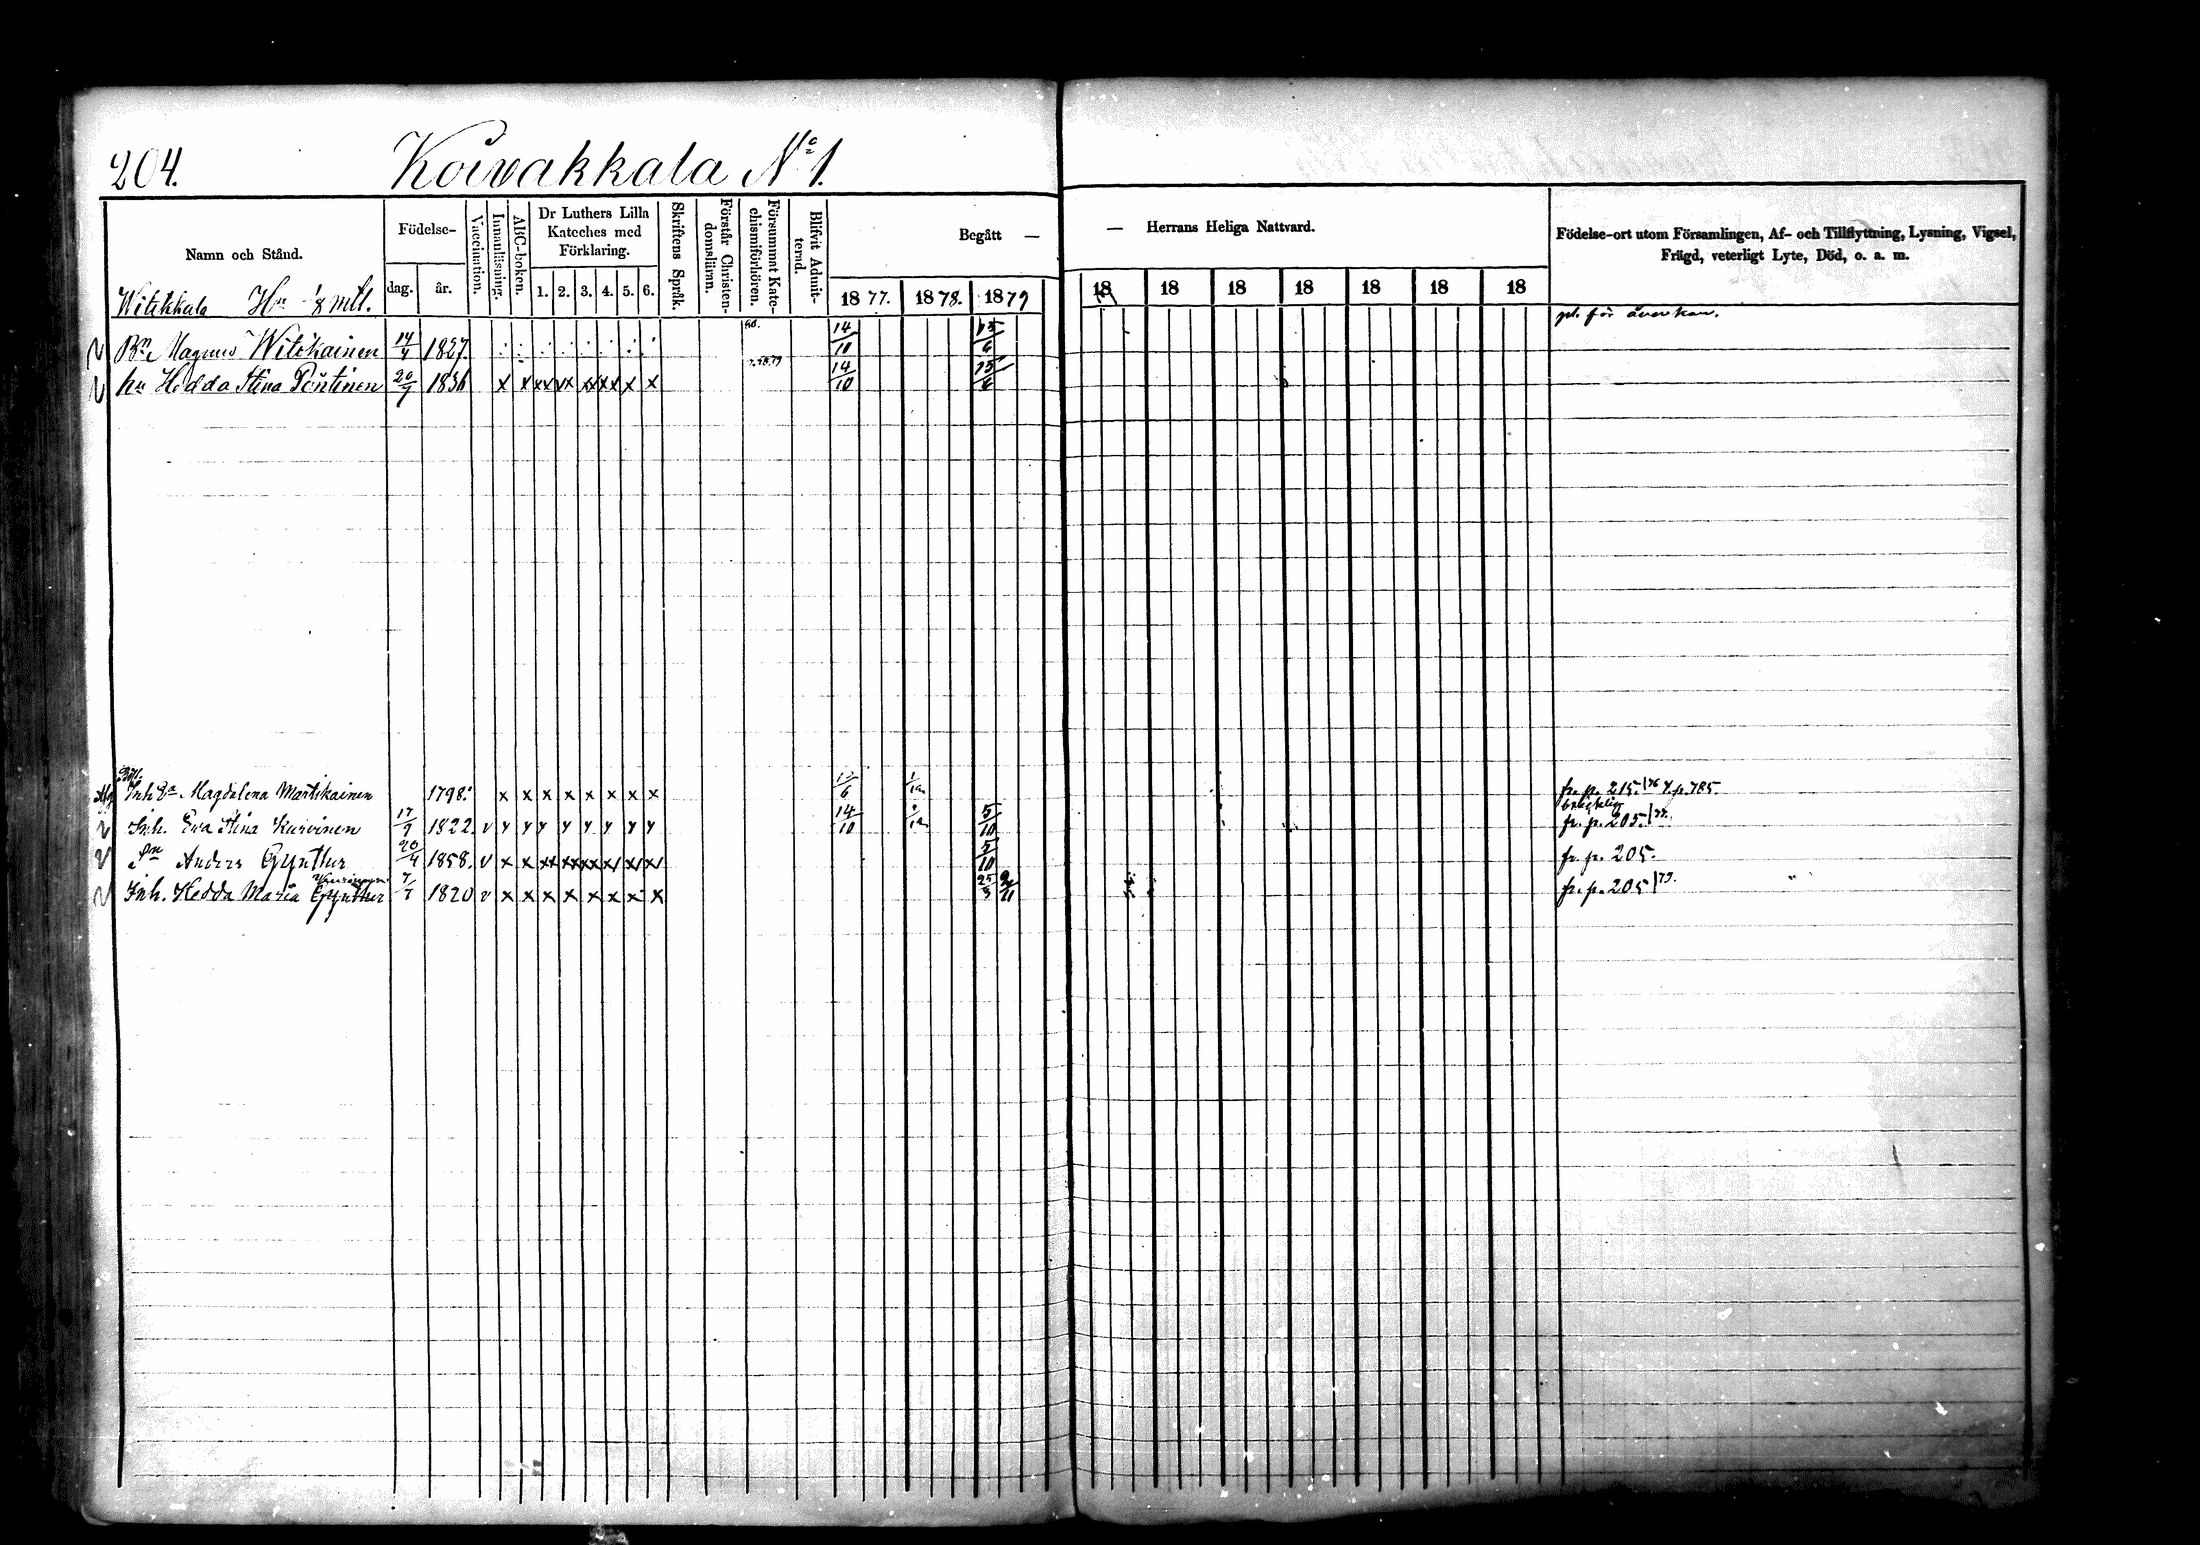 204.
Koivakkala No 1.
Namn och Stånd.
Födelse-
dag.
år.
Vaccination.
Innanläsning.
ABC-boken.
Dr Luthers Lilla
Kateches med
Förklaring.
1. 2. 3. 4. 5. 6.
Skriftens Språk.
Förstår Christen-
domslärан.
Försummat Kate-
chismiförhören.
Blifvit Admit-
terad.
Begått —
— Herrans Heliga Nattvard.
1877. 1878. 1879 18 18 18 18 18 18 18
Födelse-ort utom Församlingen, Af- och Tillflyttning, Lysning, Vigsel,
Frägd, veterligt Lyte, Död, o. a. m.
Witikkala Hn 1/8 mtl.
Bn Magnus Witikainen 14/4 1827. 14/10 15/6
hu Hedda Stina Pöntinen 20/7 1836 x x xx xx x 14/10 15/6
Inh Ea Magdalena Martikainen 1798. x x x x x x x x fr. p. 215. /76 p. 785
Inh. Eva Stina Kurvinen 17/9 1822 v 14/10 5/10 fr. p. 205.
Sn Anders Gynther 20/4 1858. v x x 5/10 fr. p. 205.
Inh. Hedda Maria Gynther 1820 v x x x x x x x x 25/3 fr. p. 205 /79.